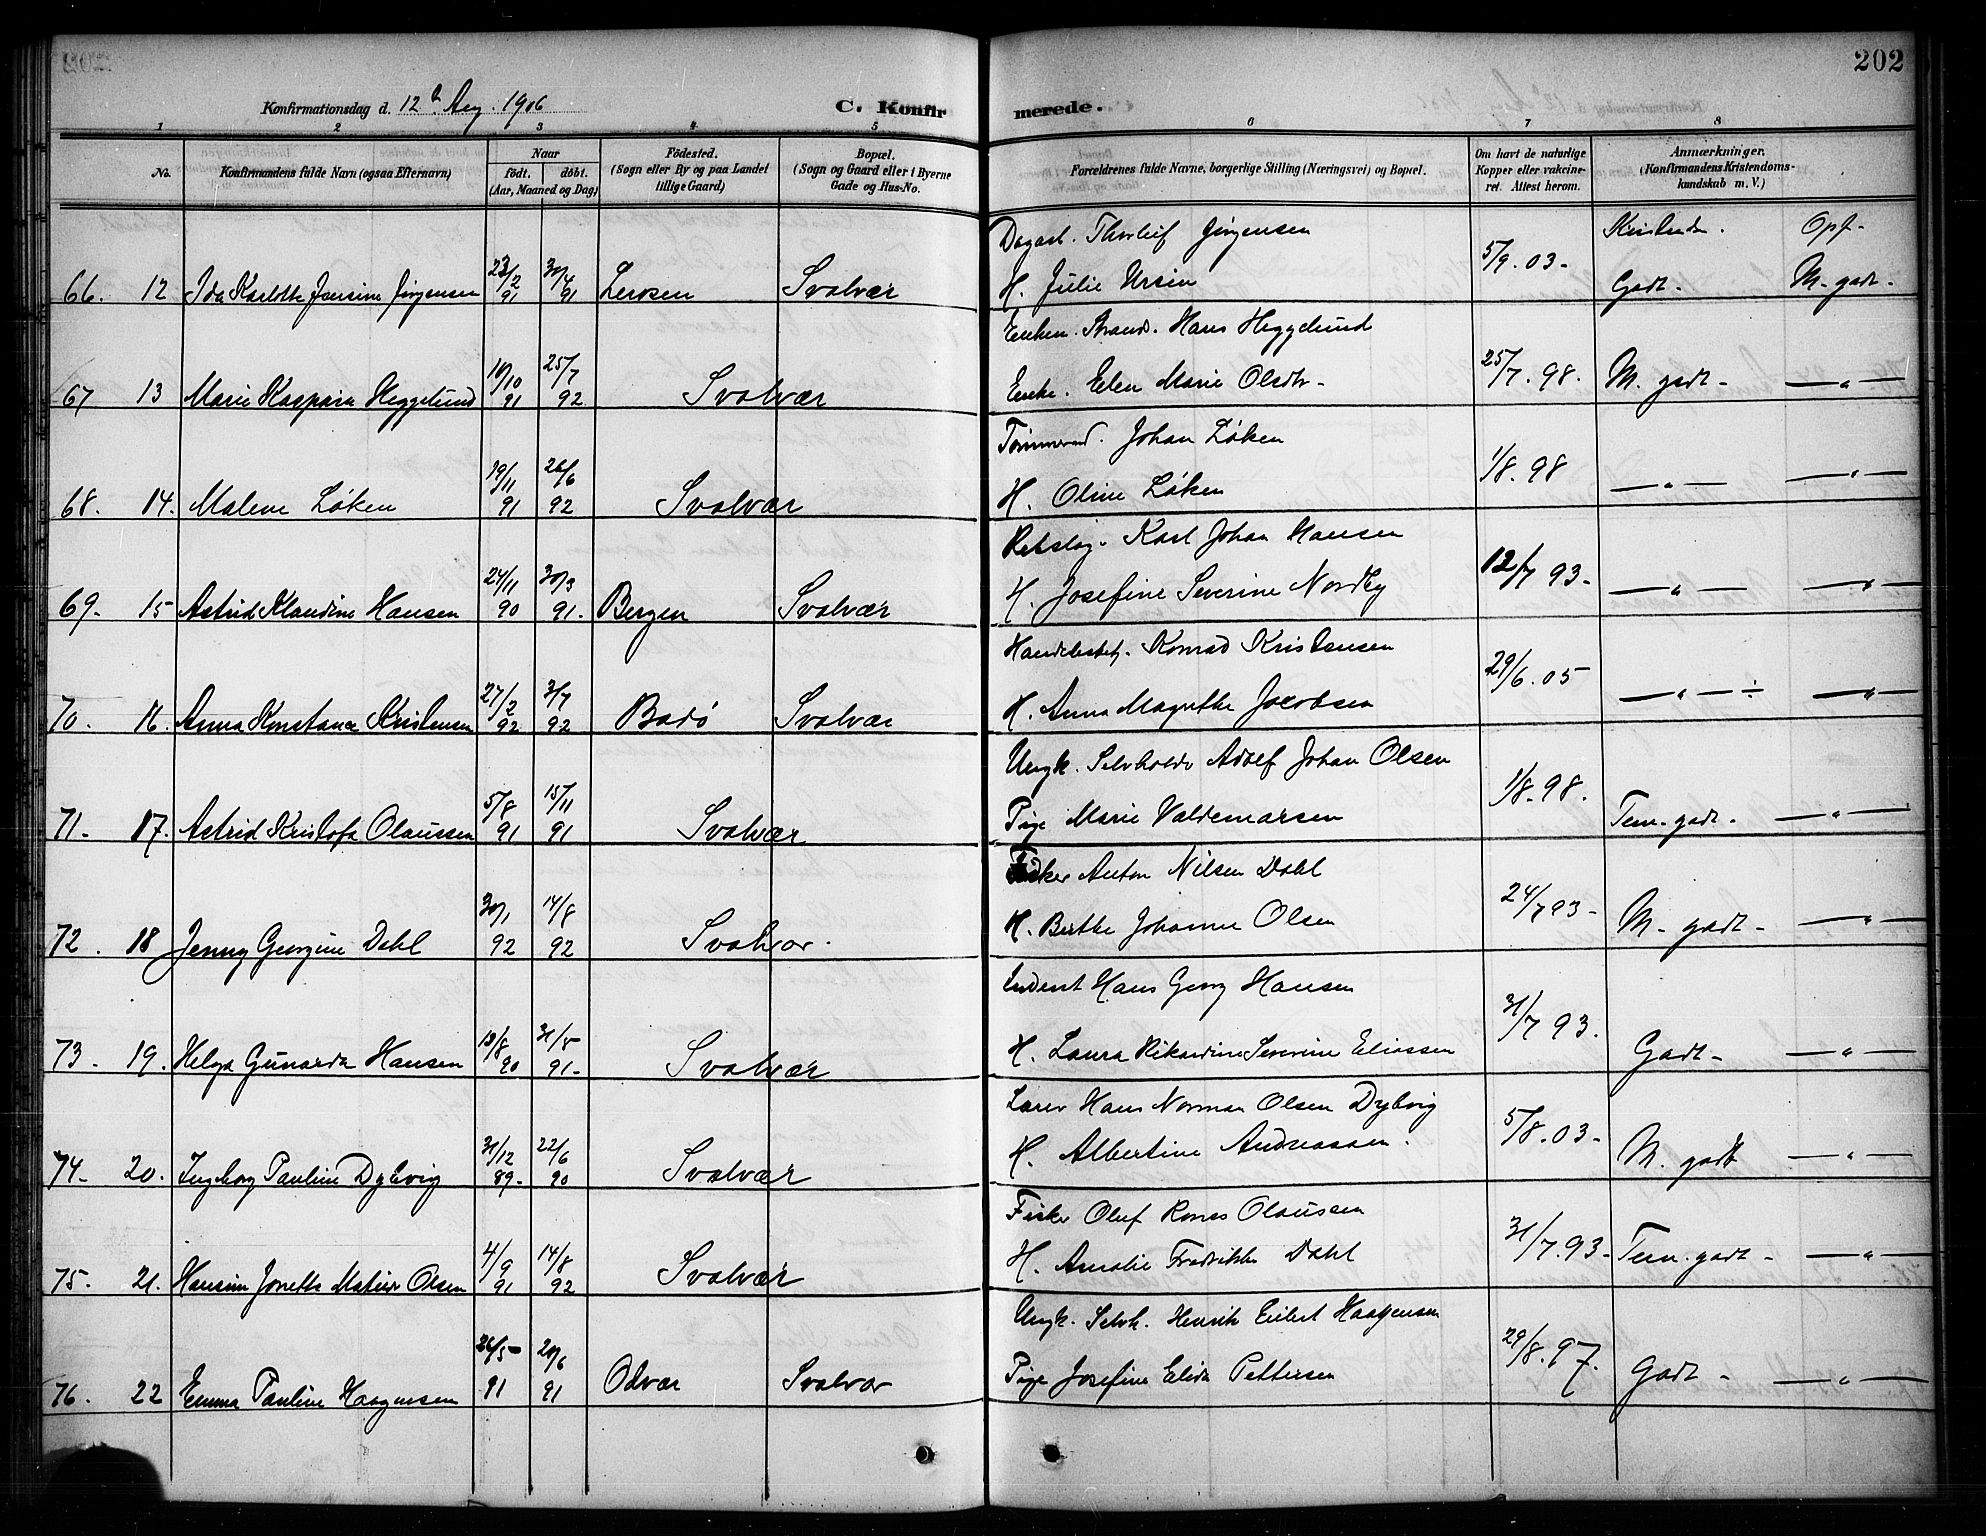 202
Konfirmationsdag d. 12te Aug. 1906 C. Konfirmerede.
1 2 3 4 5 6 7 8
No. Konfirmandens fulde Navn (ogsaa Efternavn) Naar født. døbt. (Aar, Maaned og Dag) Fødested. (Sogn eller By og paa Landet tillige Gaard) Bopæl. (Sogn og Gaard eller i Byerne Gade og Hus-No. Forældrenes fulde Navne, borgerlige Stilling (Næringsvei) og Bopæl. Om havt de naturlige Kopper eller vakcineret. Attest herom. Anmærkninger. (Konfirmandens Kristendomskundskab m. V.)
Dagarb. Thorleif Jørgensen Kristendm. Opf.
66. 12 Ida Karlotte Jensine Jørgensen 23/2 91 30/4 91 Svolvær H. Julie Ursin 5/9. 03. Godt. M. godt.
Enkem. Strand. Hans Heggelund
67 13 Marie Kaspara Heggelund 10/10 91 25/7 92 Svolvær Enke. Elen Marie Olsdtr. 25/7. 98. M. godt. — " —
Tømmermd. Johan Løken
68. 14. Malene Løken 19/11 91 26/6 92 Svolvær H. Oline Løken 1/8. 98 — " — — " —
Karl Johan Hansen
69. 15 Astrid Klaudine Hansen 24/11 90 30/3 91. Bergen Svolvær H. Josefine Severine Nordby 12/7 93. — " — — " —
Handelsbetj. Konrad Kristensen
70. 16. Anna Konstance Kristensen 27/2 92 3/7 92 Bodø Svolvær H. Anna Magrethe Jacobsen 29/6. 05 — " — ÷ — " —
Ungk. Selvholdr Adolf Johan Olsen
71. 17. Astrid Kristofa Olaussen 5/8 91 15/11 91 Svolvær Pige Marie Valdemarsen 1/8. 98. Tem. godt. — " —
Fisker Anton Nilsen Dahl
72. 18 Jenny Georgine Dahl 30/1 92 14/8 92 Svolvær. H. Berthe Johanne Olsen 24/7 93. M. godt. — " —
Hans Georg Hansen
73. 19. Helga Gunarda Hansen 13/8 90 31/5 91. Svolvær H. Laura Rikardine Severine Eliassen 31/7 93. Godt. — " —
Hans Norman Olsen Dybvig
74. 20. Ingborg Pauline Dybvig 31/12 89. 22/6 90 Svolvær H. Albertine Andreassen. 5/8. 03. M. godt — " —
Fisker Oluf Rones Olaussen
75. 21. Hansine Jonette Matine Olsen 4/9 91 14/8 92 Svolvær H. Amalie Fredrikke Dahl 31/7. 93. Tem. godt. — " —
Ungk. Selvh. Henrik Eilert Haagensen
76. 22 Emma Pauline Haagensen 26/5 91 20/6 91 Odvær Svolvær Pige Josefine Elida Pettersen 29/8. 97. Godt. — " —